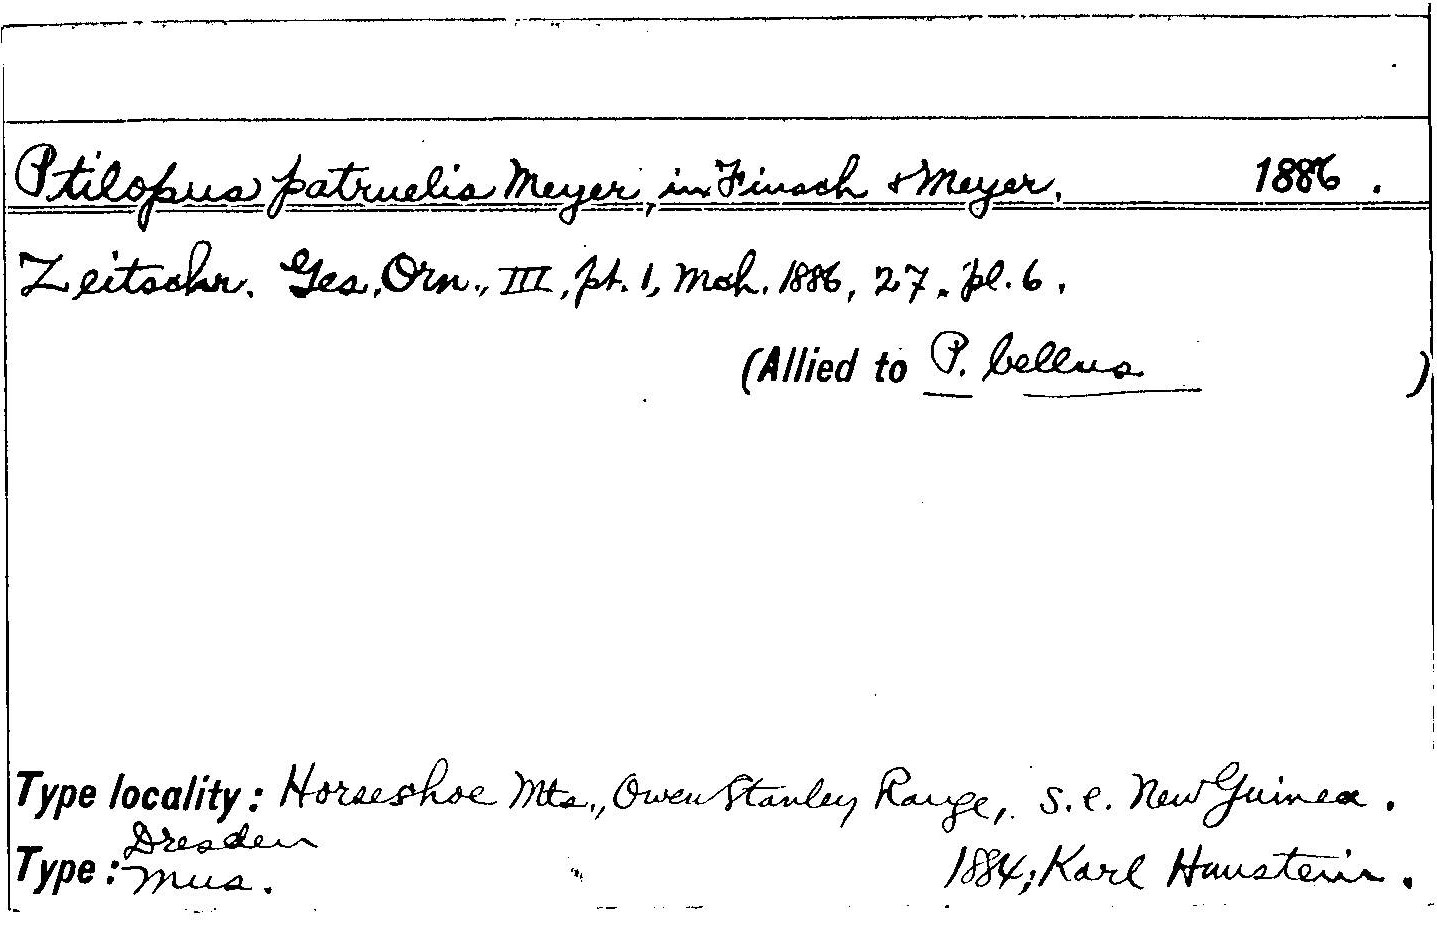 Ptilopus patruelis Meyer, in Finsch & Meyer. 1886.
Zeitschr. Ges. Orn., III, pt. 1, Mch. 1886, 27. pl. 6.
(Allied to P. bellus )
Type locality: Horseshoe Mts., Owen Stanley Range, s.e. New Guinea.
Dresden
Type: Mus. 1884; Karl Hunstein.